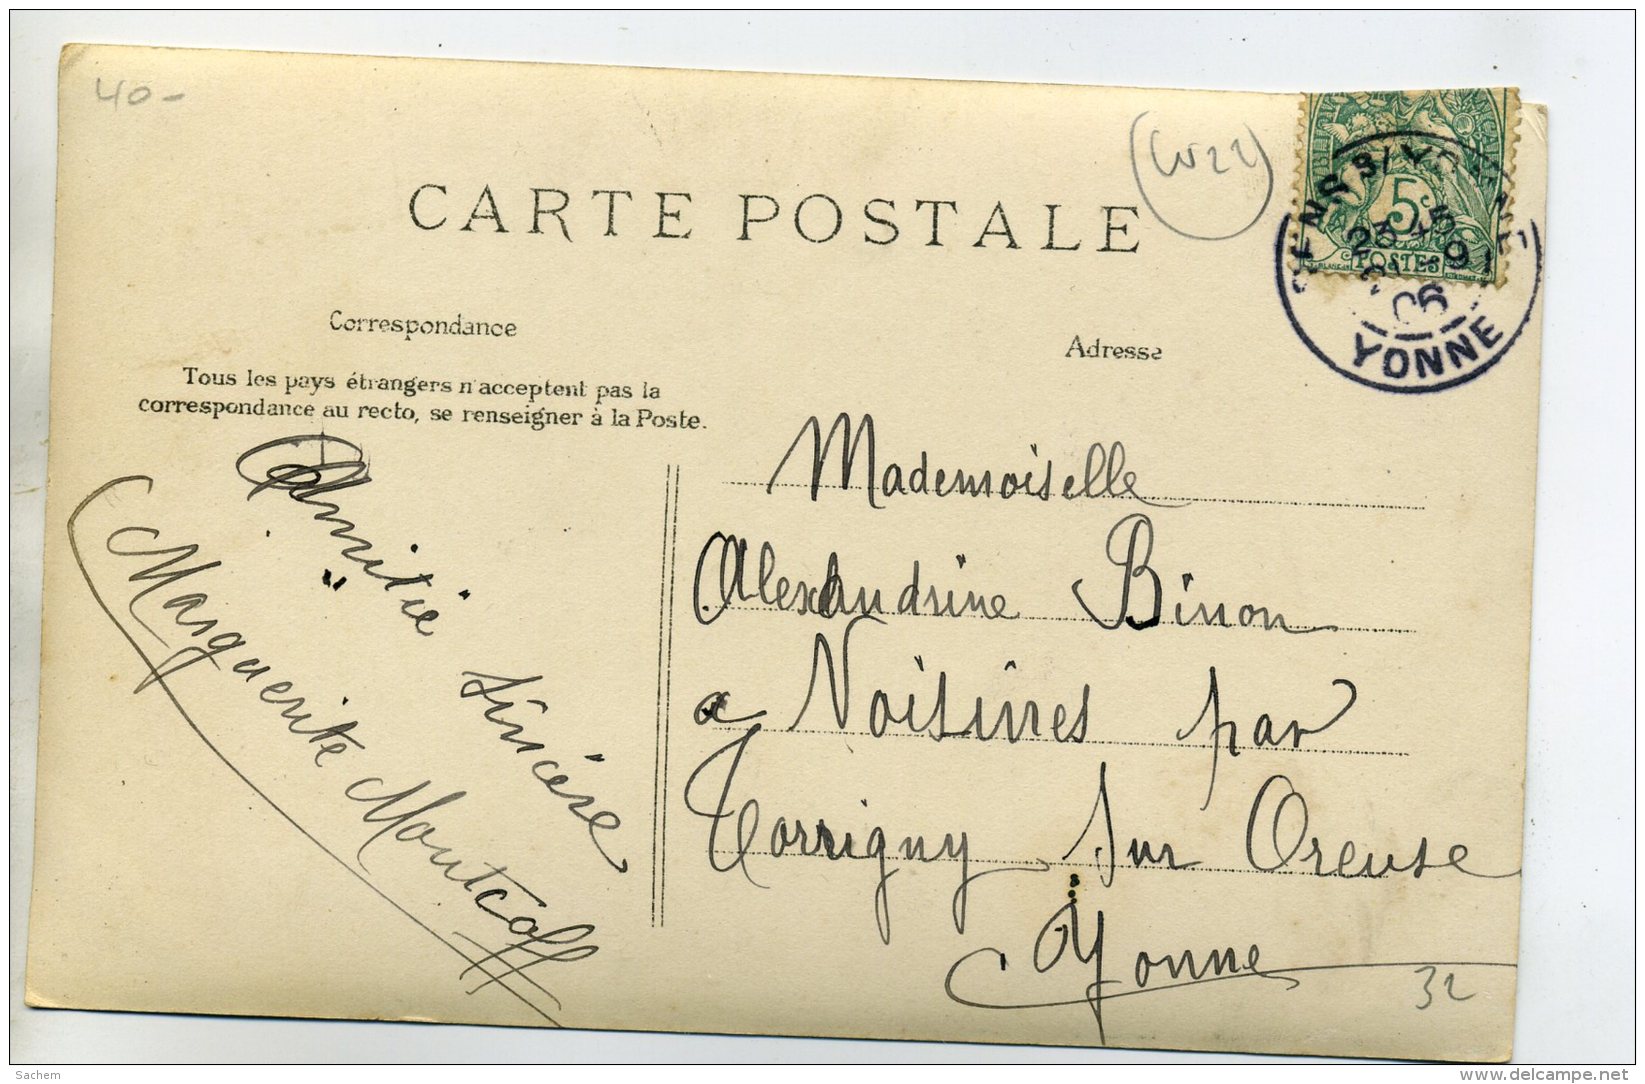 40-
CARTE POSTALE
Correspondance
Tous les pays étrangers n'acceptent pas la
correspondance au recto, se renseigner à la Poste.
Amitié sincère
Marguerite Montcoff
Adresse
5c
POSTES
YONNE
23
06
Mademoiselle
Alexandrine Binon
a Voisines par
Torrigny sur Oreuse
Yonne
32
Sachem
delcampe.net